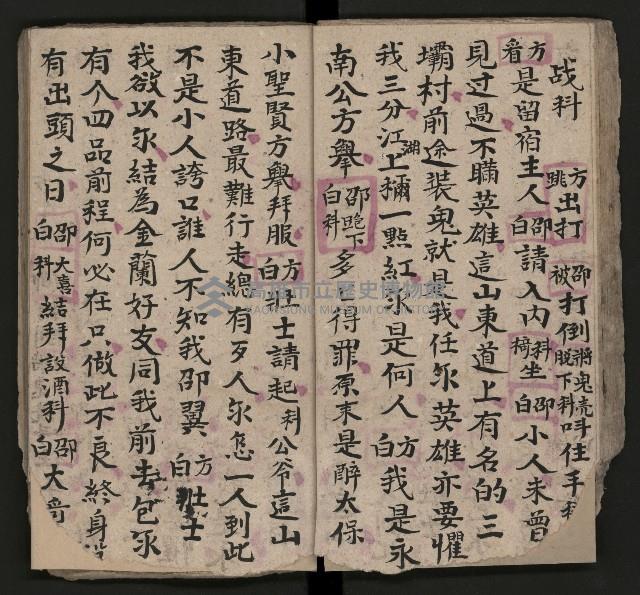 战科 方跳出打 邵被打倒將鬼売脫下科呌住手科
方看是留宿主人 邵白請入内 科椅坐 邵白小人未曾
見过過不瞞英雄這山東道上有名的三
壩村前途裝鬼就是我任尔英雄亦要懼
我三分江湖上稱一點紅尔是何人 方白我是永
南公方舉 邵跪下白科多有得罪原来是醉太保
小聖賢方舉拜服 方白壯士請起 科公爷這山
東道路最難行走總有歹人尔怎一人到此
不是小人誇口誰人不知我邵翼 方白壯士
我欲以尔結為金蘭好友同我前去包尔
有个四品前程何必在只做此不良終身
有出頭之日 邵白科大喜結拜設酒科 邵白大哥
高雄市立歷史博物館
KAOHSIUNG MUSEUM OF HISTORY